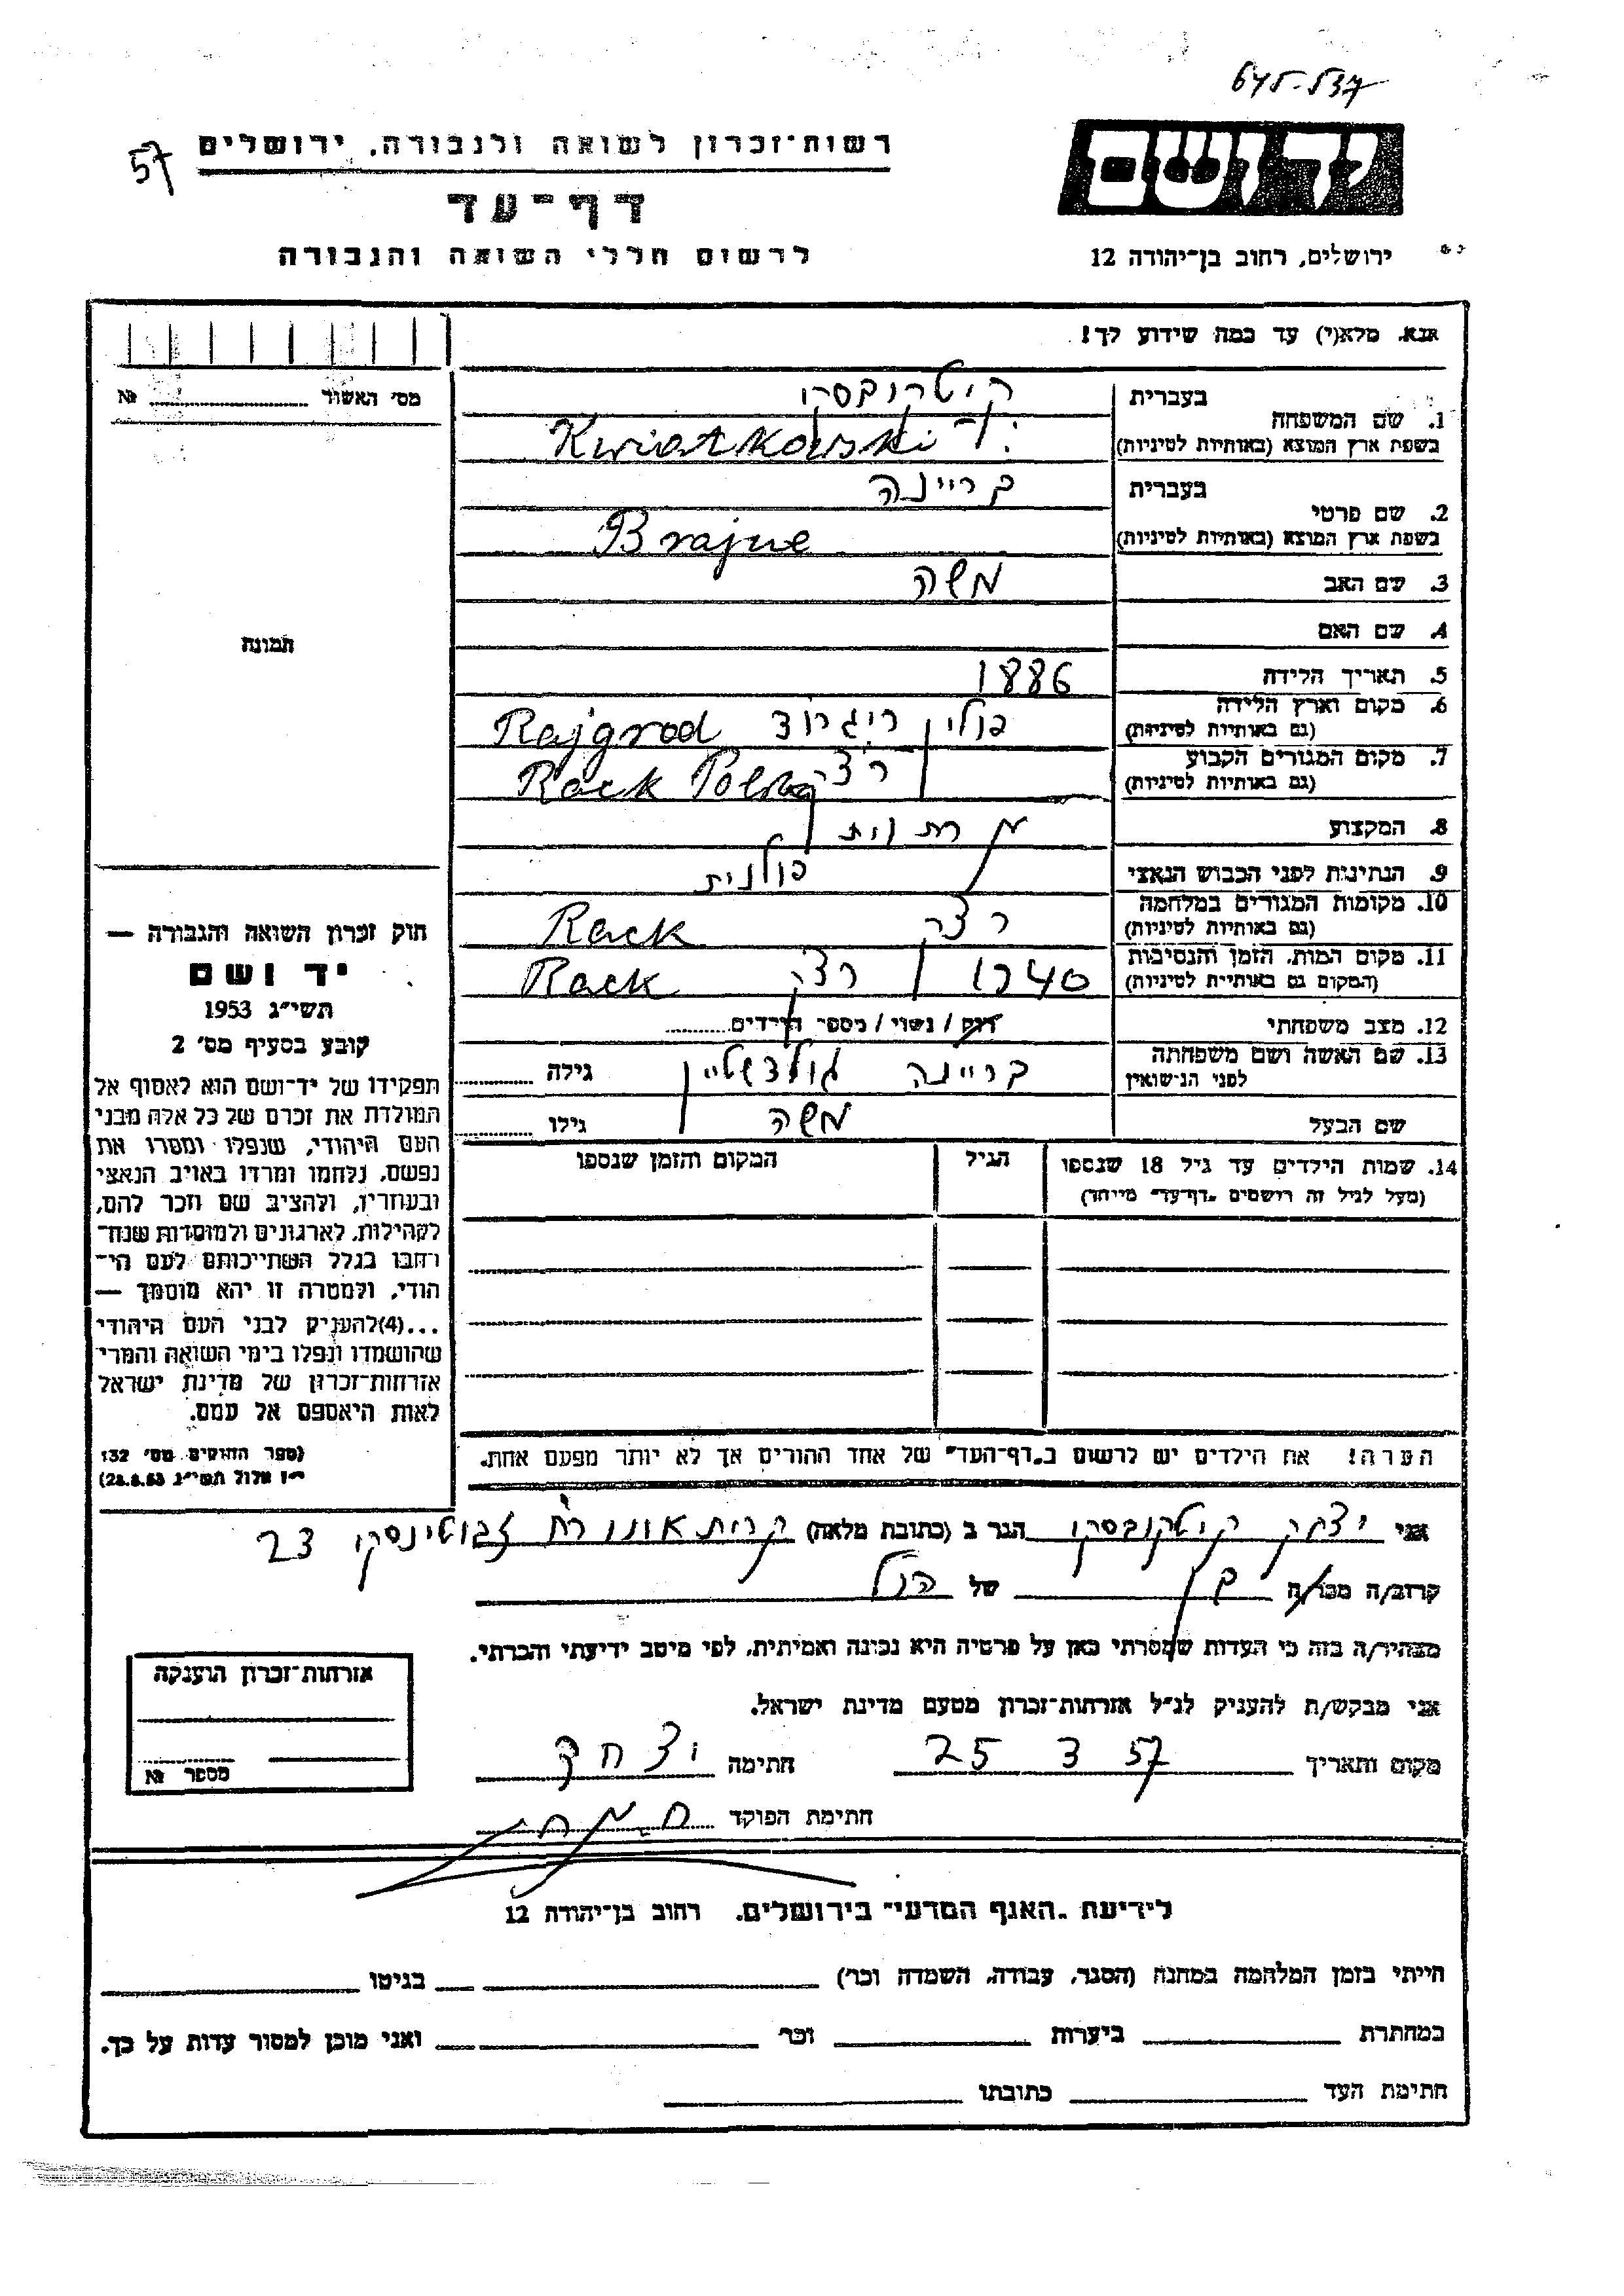 645-537
57
רשות-זכרון לשואה ולגבורה, ירושלים
יד ושם
דף-עד
לרשום חללי השואה והגבורה
ירושלים, רחוב בן-יהודה 12
אנא, מלא(י) עד כמה שידוע לך!
מס' האשור № 
1. שם המשפחה
בעברית
קויטקובסקי
בשפת ארץ המוצא (באותיות לטיניות)
Kwiatkowski
2. שם פרטי
בעברית
בריינה
בשפת ארץ המוצא (באותיות לטיניות)
Brajne
3. שם האב משה
4. שם האם
תמונה
5. תאריך הלידה 1886
6. מקום וארץ הלידה
(גם באותיות לטיניות)
פולין Rajgrod
7. מקום המגורים הקבוע
(גם באותיות לטיניות)
Rack Polska
8. המקצוע
9. הנתינות לפני הכבוש הנאצי פולנית
10. מקומות המגורים במלחמה
(גם באותיות לטיניות)
Rack
11. מקום המות, הזמן והנסיבות
(המקום גם באותיות לטיניות)
1940 Rack
12. מצב משפחתי רוק / נשוי / מספר הילדים
13. שם האשה ושם משפחתה
לפני הנישואין
בריינה גולדשטיין גילה
שם הבעל משה גילו
14. שמות הילדים עד גיל 18 שנספו
(מעל לגיל זה רושמים "דף-עד" מיוחד)
הגיל
המקום והזמן שנספו
הערה! את הילדים יש לרשום ב"דף-העד" של אחד ההורים אך לא יותר מפעם אחת.
חוק זכרון השואה והגבורה —
יד ושם
תשי"ג 1953
קובע בסעיף מס' 2
תפקידו של יד-ושם הוא לאסוף אל
המולדת את זכרם של כל אלה מבני
העם היהודי, שנפלו ומסרו את
נפשם, נלחמו ומרדו באויב הנאצי
ובעוזריו, ולהציב שם וזכר להם,
לקהילות, לארגונים ולמוסדות שנח-
רבו בגלל השתייכותם לעם הי-
הודי, ולמטרה זו יהא מוסמך —
...(4) להעניק לבני העם היהודי
שהושמדו ונפלו בימי השואה והמרי
אזרחות-זכרון של מדינת ישראל
לאות היאספם אל עמם.
(ספר החוקים מס' 132
י"ז אלול תשי"ג 28.8.53)
אני יצחק קויטקובסקי הגר ב (כתובת מלאה) קרית אונו רח ז'בוטינסקי 23
קרוב/ה מכר/ה בן של הנ"ל
מצהיר/ה בזה כי העדות שמסרתי כאן על פרטיה היא נכונה ואמיתית, לפי מיטב ידיעתי והכרתי.
אני מבקש/ת להעניק לנ"ל אזרחות-זכרון מטעם מדינת ישראל.
מקום ותאריך 25 3 57 חתימה יצחק
חתימת הפוקד
אזרחות-זכרון הוענקה
מספר №
לידיעת "האגף המדעי" בירושלים, רחוב בן-יהודה 12
הייתי בזמן המלחמה במחנה (הסגר, עבודה, השמדה וכו') בגיטו
במחתרת ביערות וכו' ואני מוכן למסור עדות על כך.
חתימת העד כתובתו